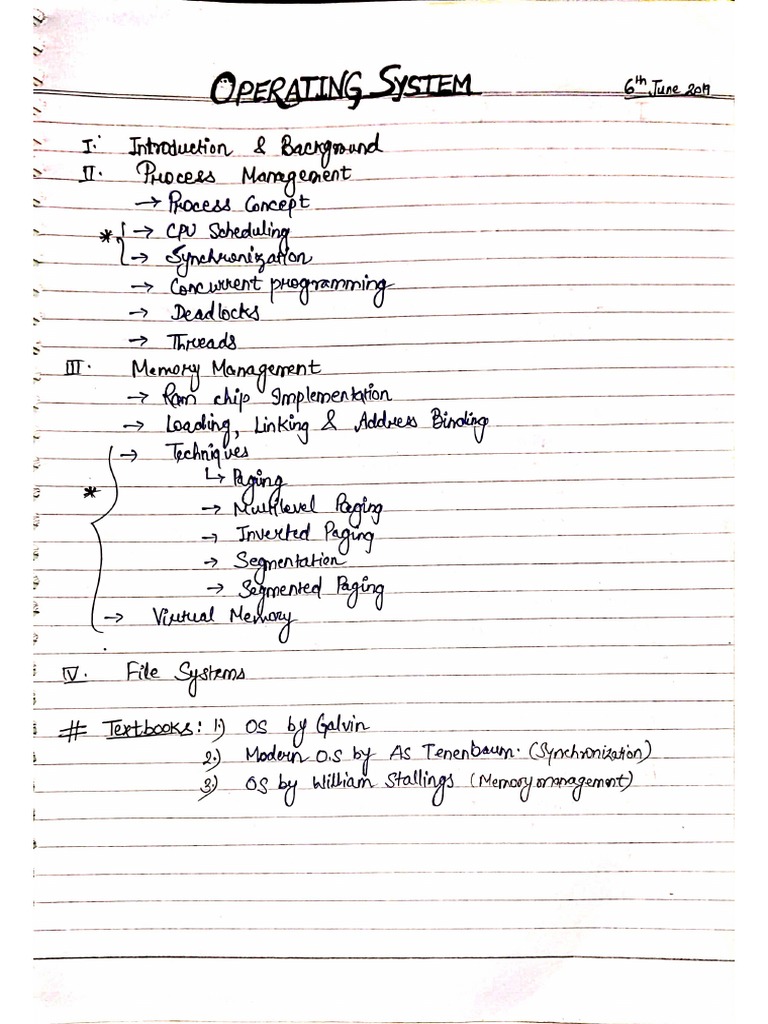 OPERATING SYSTEM
6th June 2019
I. Introduction & Background
II. Process Management
→ Process Concept
* → CPU Scheduling
→ Synchronization
→ Concurrent programming
→ Deadlocks
→ Threads
III. Memory Management
→ Ram chip Implementation
→ Loading, Linking & Address Binding
→ Techniques
* ↳ Paging
→ Multilevel Paging
→ Inverted Paging
→ Segmentation
→ Segmented Paging
→ Virtual Memory
IV. File Systems
# Textbooks: 1.) OS by Galvin
2.) Modern O.S by As Tenenbaum. (Synchronization)
3.) OS by William Stallings (Memory management)